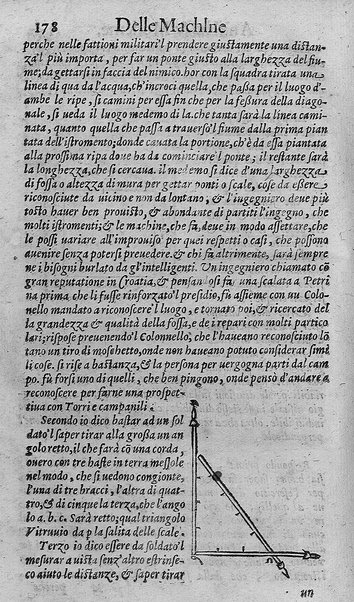 178 Delle Machine
perche nelle fattioni militari'l prendere giustamente una distan-
za'l più importa, per far un ponte giusto alla larghezza del fiu-
me; da gettarsi in faccia del nimico. hor con la squadra tirata una
linea di qua da l'acqua, ch'incroci quella, che passa per il luogo d'-
ambe le ripe, si camini per essa fin che per la fessura della diago-
nale, si ueda il luogo medemo di la. che tanta sarà la linea cami-
nata, quanto quella che passa a trauerso'l fiume dalla prima pian
tata dell'istromento; donde cauata la portione, ch'è da essa piantata
alla prossima ripa doue ha da cominciare'l ponte; il restante sarà
la longhezza, che si cercaua. il medemo si dice d'una larghezza
di fossa o altezza di mura per gettar ponti o scale, cose da essere
riconosciute da uicino e non da lontano, & l'ingegniero deue più
tosto hauer ben prouisto, & abondante di partiti l'ingegno, che
molti istromenti; & le machine, che fà, deue in modo assettare, che
le possi uariare all'improuiso per quei respetti o casi, che possono
auenire senza potersi preuedere. & chi fà altrimente, sarà sempre
ne i bisogni burlato da gl'intelligenti. Un ingegniero chiamato cō
gran reputatione in Croatia, & pensandosi fa una scalata a Petri
na prima che li fusse rinforzato'l presidio, fù assieme con uu Colo
nello mandato a riconoscere l luogo, e tornati poi, & ricercato del
la grandezza & qualità della fossa, e de i repari con molti partico
lari; rispose preuenendo'l Colonnello, che l'haueano reconosciuto lō
tano un tiro di moschetto, onde non haueano potuto considerar simi
li cose. si rise a bastanza, & la persona per uergogna partì dal cam
po. fù forsi uno di quelli, che ben pingono, onde pensò d'andare a
reconoscere per farne una prospet-
tiua con Torri e campanili.
Secondo io dico bastar ad un sol
dato'l saper tirar alla grossa un an
golo retto, il che farà cō una corda,
ouero con tre haste in terra messole
nel modo, che si uedono congionte,
l'una di tre bracci, l'altra di quat-
tro, & di cinque la terza, che l'ango
lo a. b. c. sarà retto; qual triangolo
Vitruuio da p la salita delle scale.
Terzo io dico essere da soldato'l
mesurar a uista senz'altro estrinse-
co aiuto le distanze, & saper tirar
un